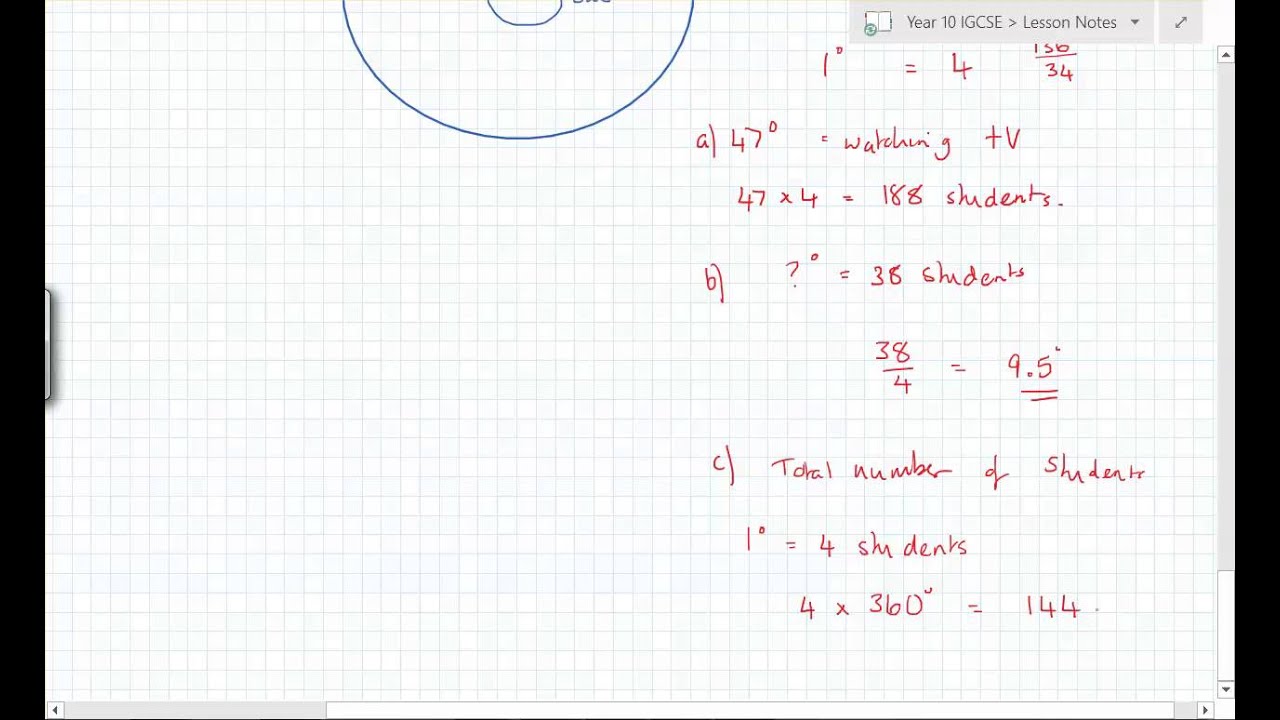 Year 10 IGCSE > Lesson Notes
1° = 4 136/34
a) 47° = watching tV
47 x 4 = 188 students.
b) ?° = 38 students
38/4 = 9.5°
c) Total number of Students
1° = 4 students
4 x 360° = 144